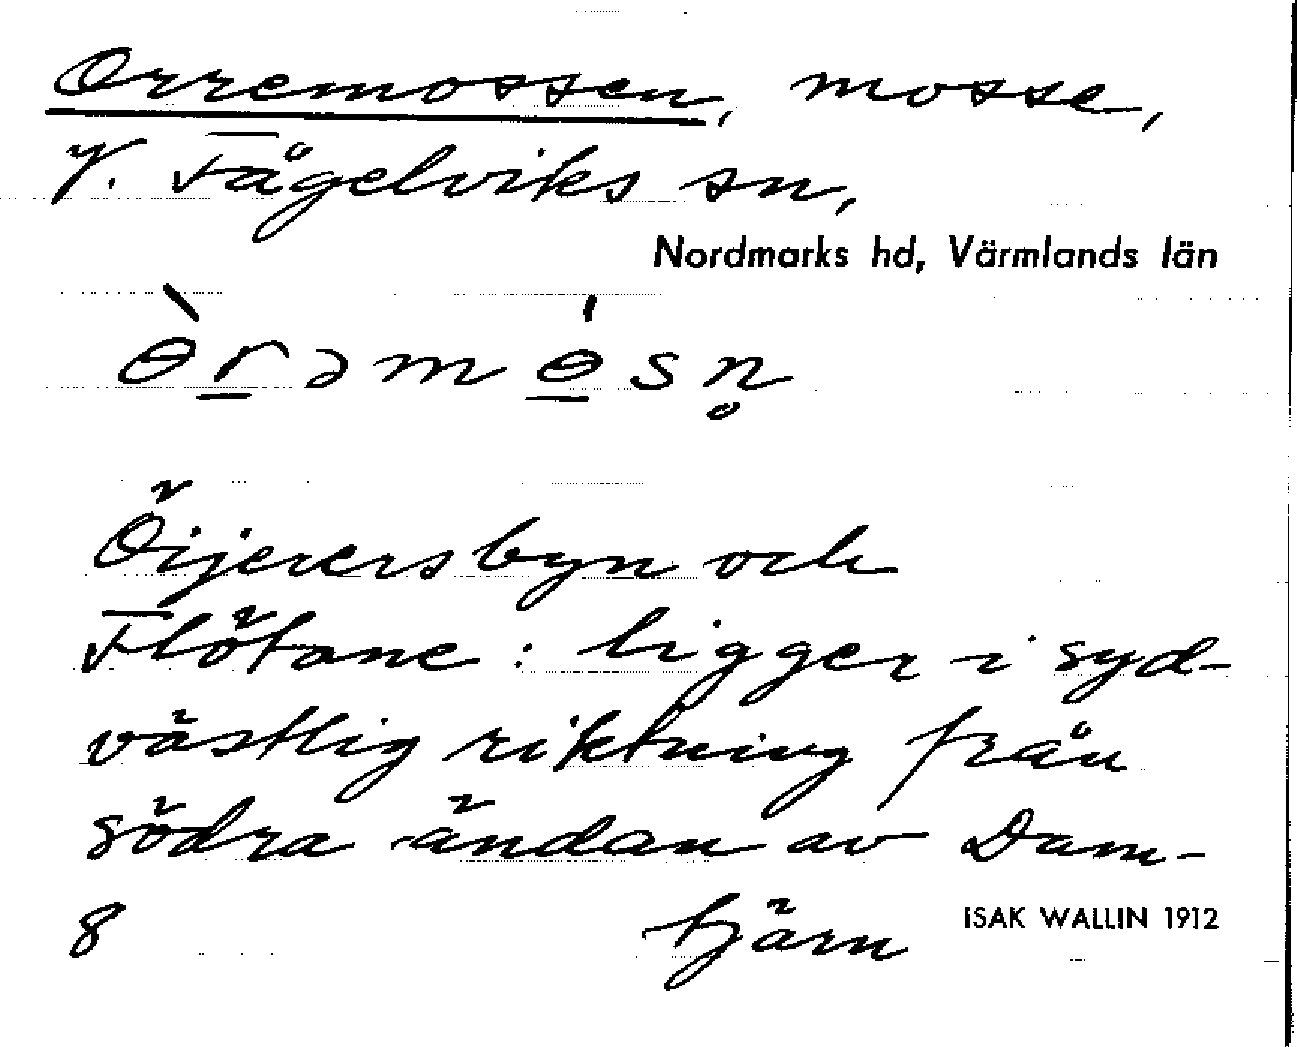 Orremossen, mosse,
V. Fågelviks sn,
Nordmarks hd, Värmlands län
ɵ̀r̲əmɵ̲́sn̥
Öijerersbyn och
Flötane: ligger i syd-
västlig riktning från
södra ändan av Dam-
tjärn
ISAK WALLIN 1912
8